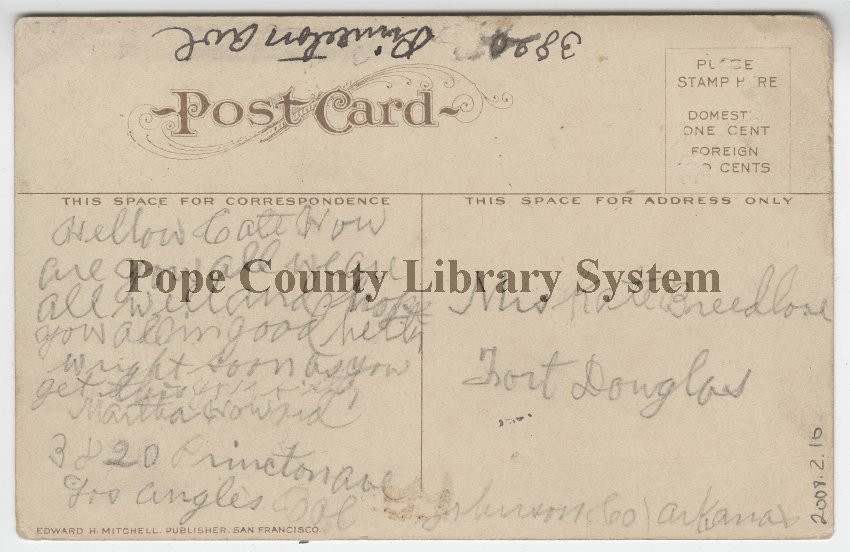 3820
Princeton ave
Post Card
PLACE
STAMP HERE
DOMESTIC
ONE CENT
FOREIGN
TWO CENTS
THIS SPACE FOR CORRESPONDENCE
THIS SPACE FOR ADDRESS ONLY
Hellow Cate How
are you all we are
all well and hope
you all in good helth
wright soon as you
get this
Martha Howard
3820 Princton ave
Los angles Cal
Mrs Kate Breedlove
Fort Douglas
Johnson Co arkansas
Pope County Library System
EDWARD H. MITCHELL, PUBLISHER, SAN FRANCISCO.
2009.2.16